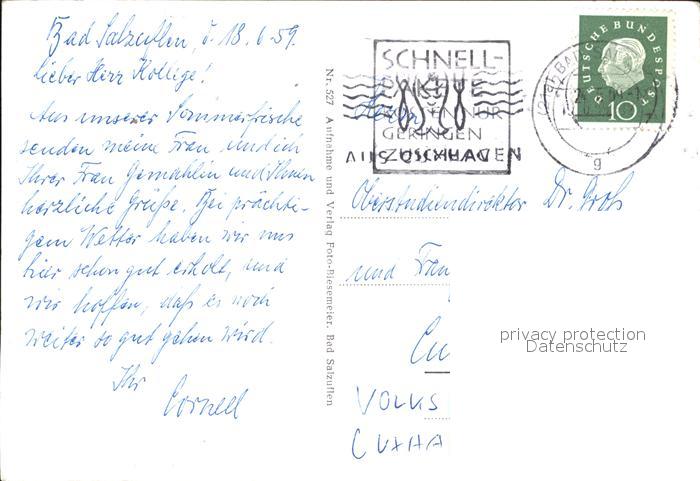 Bad Salzuflen, d. 18.6.59.
lieber Herr Kollige!
Aus unserer Sommerfrische
senden meine Frau und ich
Ihrer Frau Gemahlin und Ihnen
herzliche Grüße. Bei prächti-
gem Wetter haben wir uns
hier schon gut erholt, und
wir hoffen, daß es noch
weiter so gut gehen wird.
Ihr
Cornell
Nr. 527 Aufnahme und Verlag Foto-Biesemeier, Bad Salzuflen
SCHNELL-
NUR
GERINGEN
DEUTSCHE BUNDESPOST
10
g
Herrn
Oberstudiendirektor Dr. Grohs
und Frau
Cu
VOLKS
CUXHA
privacy protection
Datenschutz